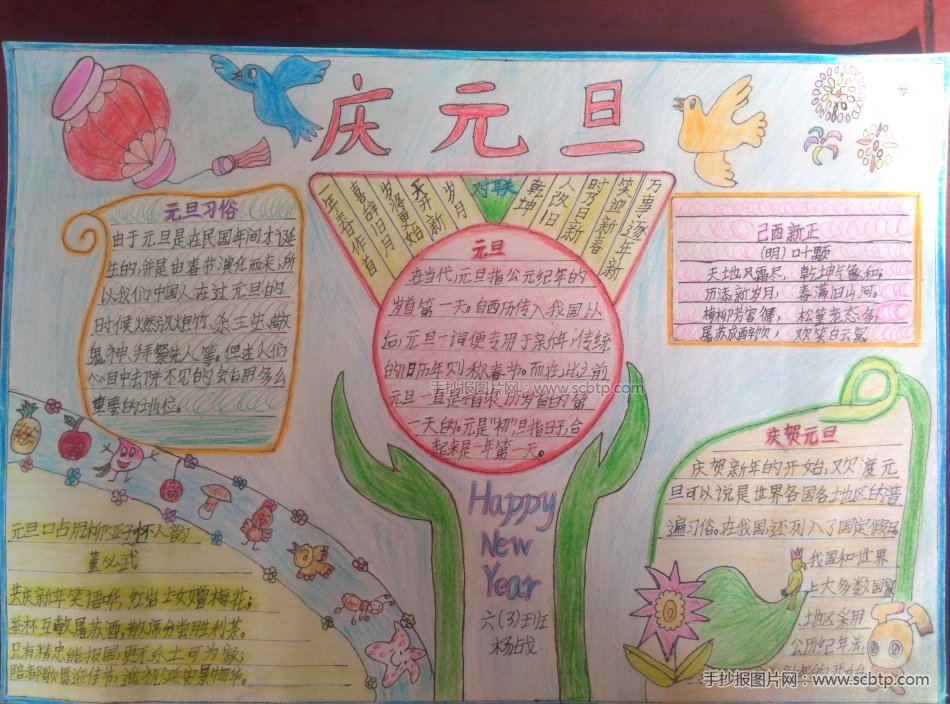 庆元旦
元旦习俗
由于元旦是在民国年间才诞
生的,并是由春节演化而来,所
以我们中国人在过元旦的
时候燃放炮竹、杀三牲、敬
鬼神、拜祭先人等。但在人们
心目中去
重要的地位。
对联
万事逐年新
笑迎新春
时乃日新
人改旧
乾坤
岁月
开新
岁序更始
喜辞旧月
一年春作首
元旦
在当代,元旦指公元纪年的
岁首第一天。自西历传入我国以
后,元旦一词便专用于新年,传统
的旧历年则称春节。而在此之前
元旦一直是指农历岁首的第
一天的。元是“初”旦指日子,合
起来是一年第一天。
己酉新正
(明)叶颙
天地风霜尽, 乾坤气象和;
历添新岁月, 春满旧山河。
梅柳芳容徲, 松篁老态多;
屠苏成醉饮, 欢笑白云窝。
手抄报图片网:www.scbtp.com
元旦口占用柳亚子怀人韵
董必武
共庆新年笑语哗,红岩士女赠梅花;
举杯互敬屠苏酒,散席分尝胜利茶。
只有精忠能报国,更无乐土可为家;
陪都歌舞迎佳节,遥祝延安景物华。
Happy
New
Year
六(3)班
杨战
庆贺元旦
庆贺新年的开始,欢渡元
旦可以说是世界各国各土地区的普
遍习俗。在我国还列入了国定假日。
我国和世界
上大多数国家
地区采用
公历纪年法
手抄报图片网:www.scbtp.com